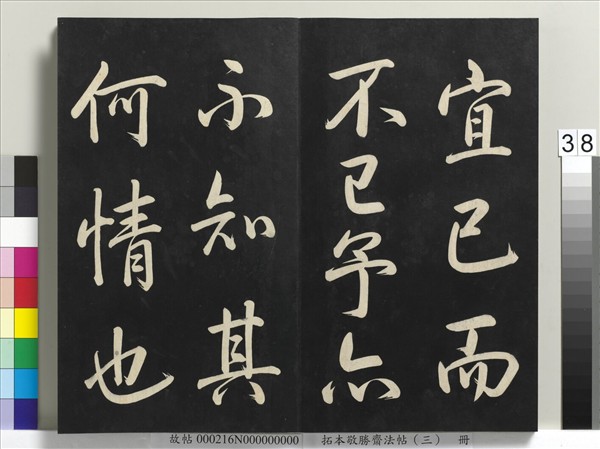 宜已而
不已予亦
不知其
何情也
38
故帖 000216N000000000 拓本敬勝齋法帖（三） 冊